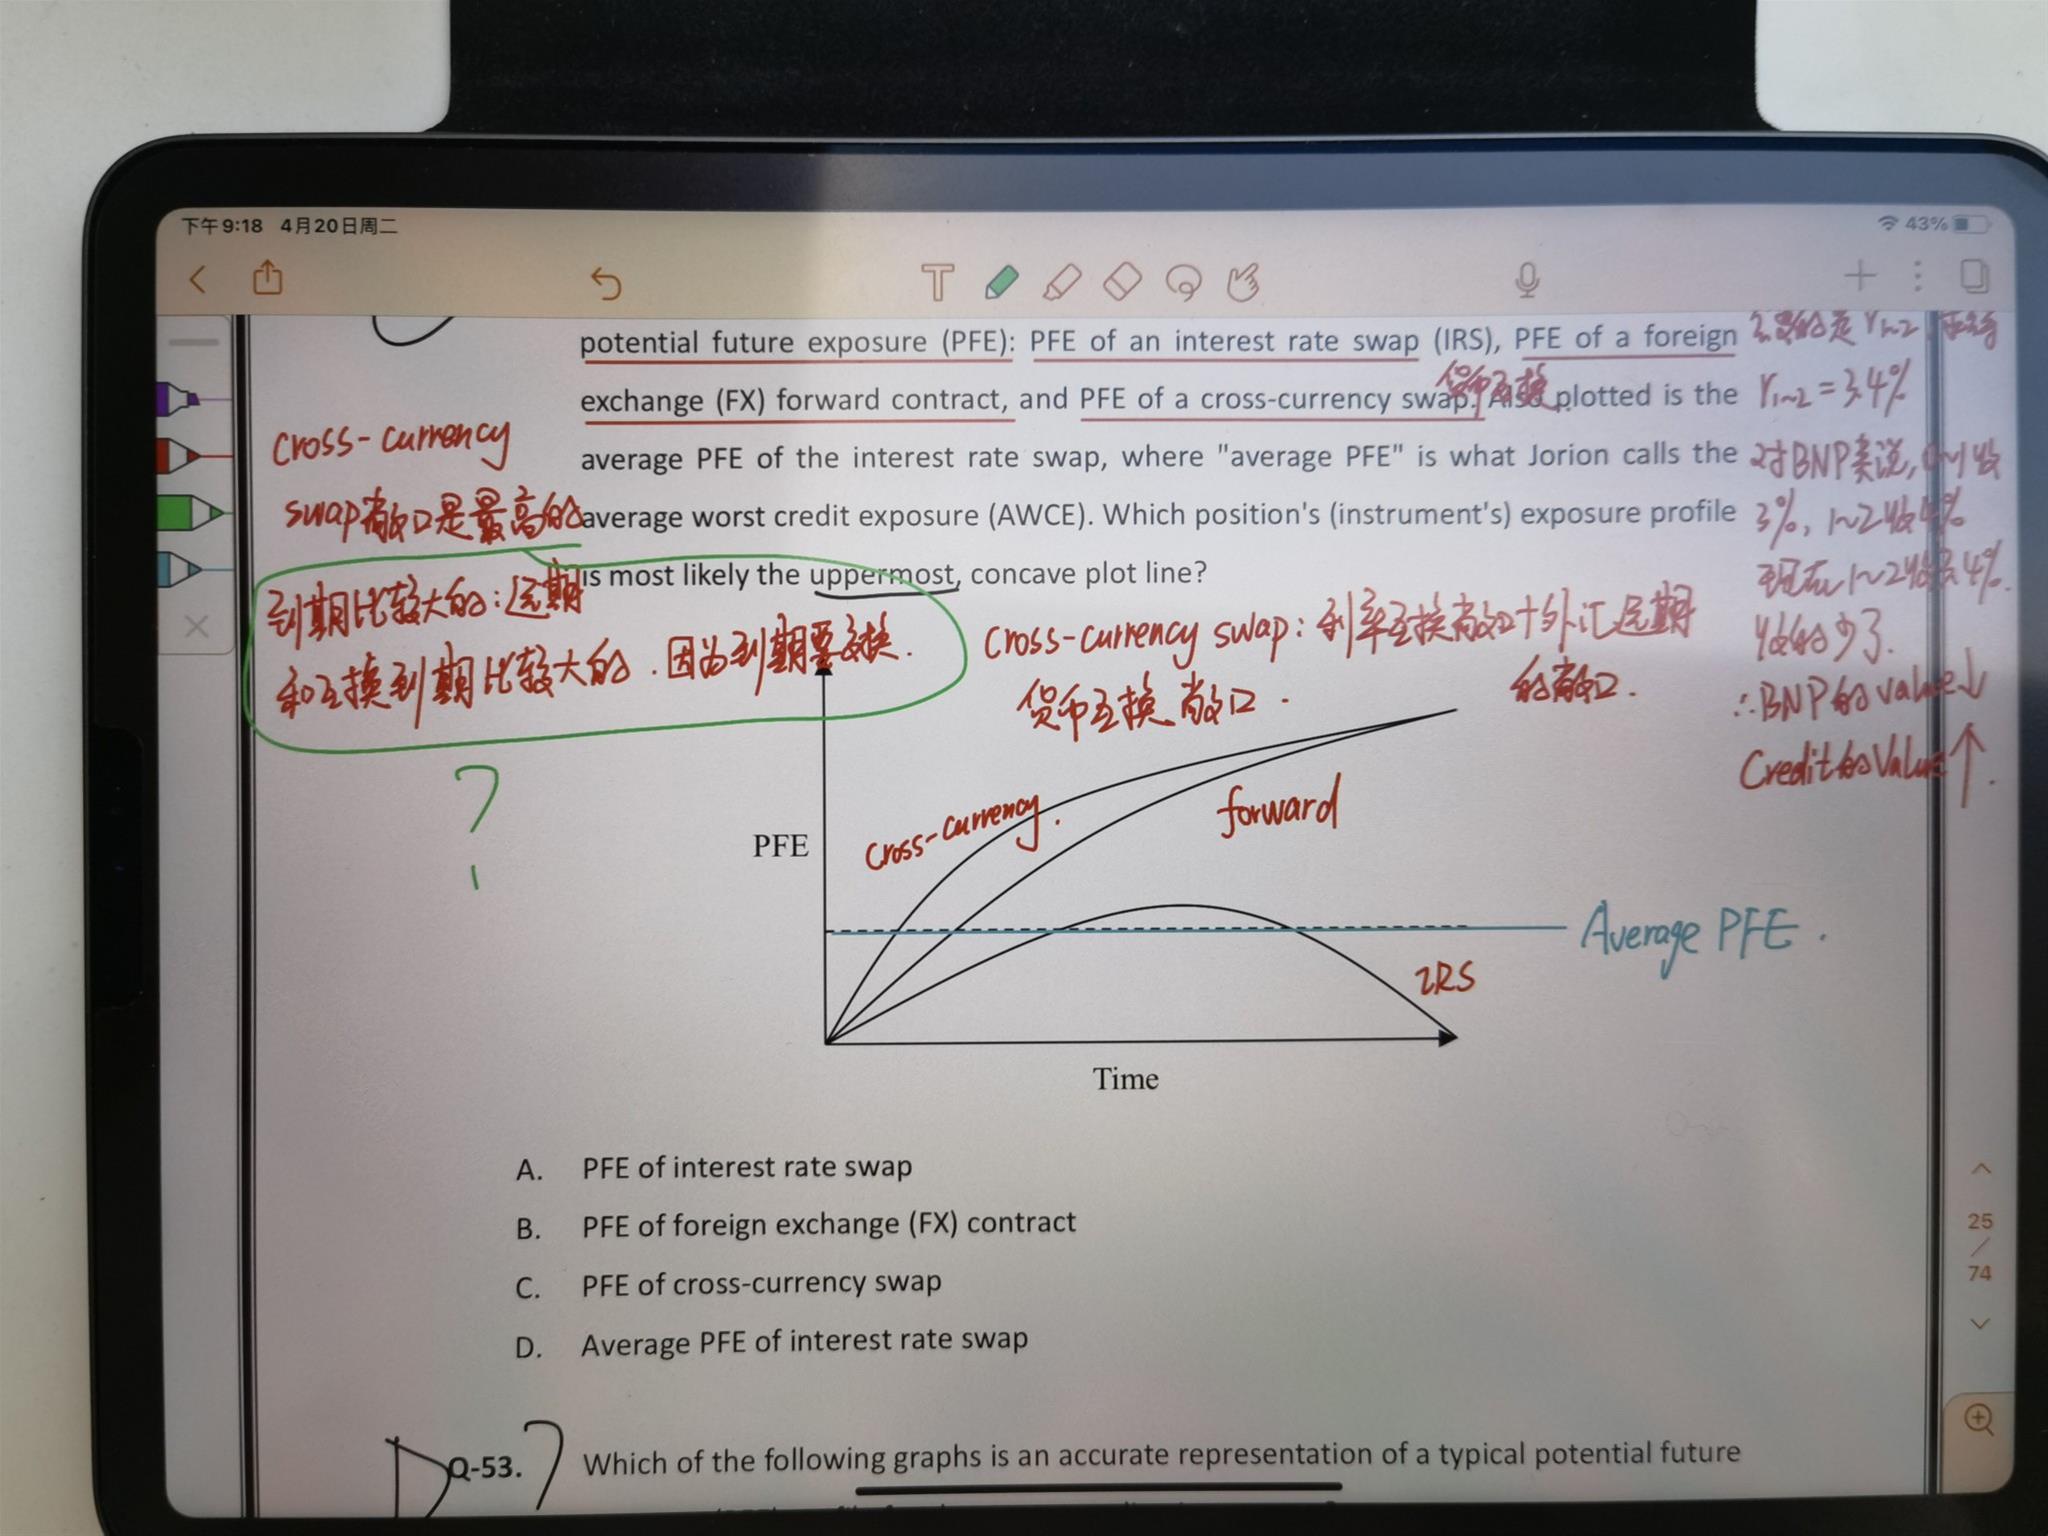 下午9:18 4月20日周二
43%
T
potential future exposure (PFE): PFE of an interest rate swap (IRS), PFE of a foreign
exchange (FX) forward contract, and PFE of a cross-currency swap. Also plotted is the
average PFE of the interest rate swap, where "average PFE" is what Jorion calls the
average worst credit exposure (AWCE). Which position's (instrument's) exposure profile
is most likely the uppermost, concave plot line?
货币互换
r₁~₂ = 3.4%
对BNP来说, 0~1收
3%, 1~2收4%
现在1~2收3.4%.
收的少了.
∴BNP的value↓
Credit的Value↑.
cross-currency
swap敞口是最高的
到期比较大的:远期
和互换到期比较大的.因为到期要交换.
?
cross-currency swap: 利率互换敞口+外汇远期
的敞口.
货币互换敞口.
cross-currency.
forward
PFE
Average PFE.
IRS
Time
A. PFE of interest rate swap
B. PFE of foreign exchange (FX) contract
C. PFE of cross-currency swap
D. Average PFE of interest rate swap
25
/
74
Q-53. ? Which of the following graphs is an accurate representation of a typical potential future